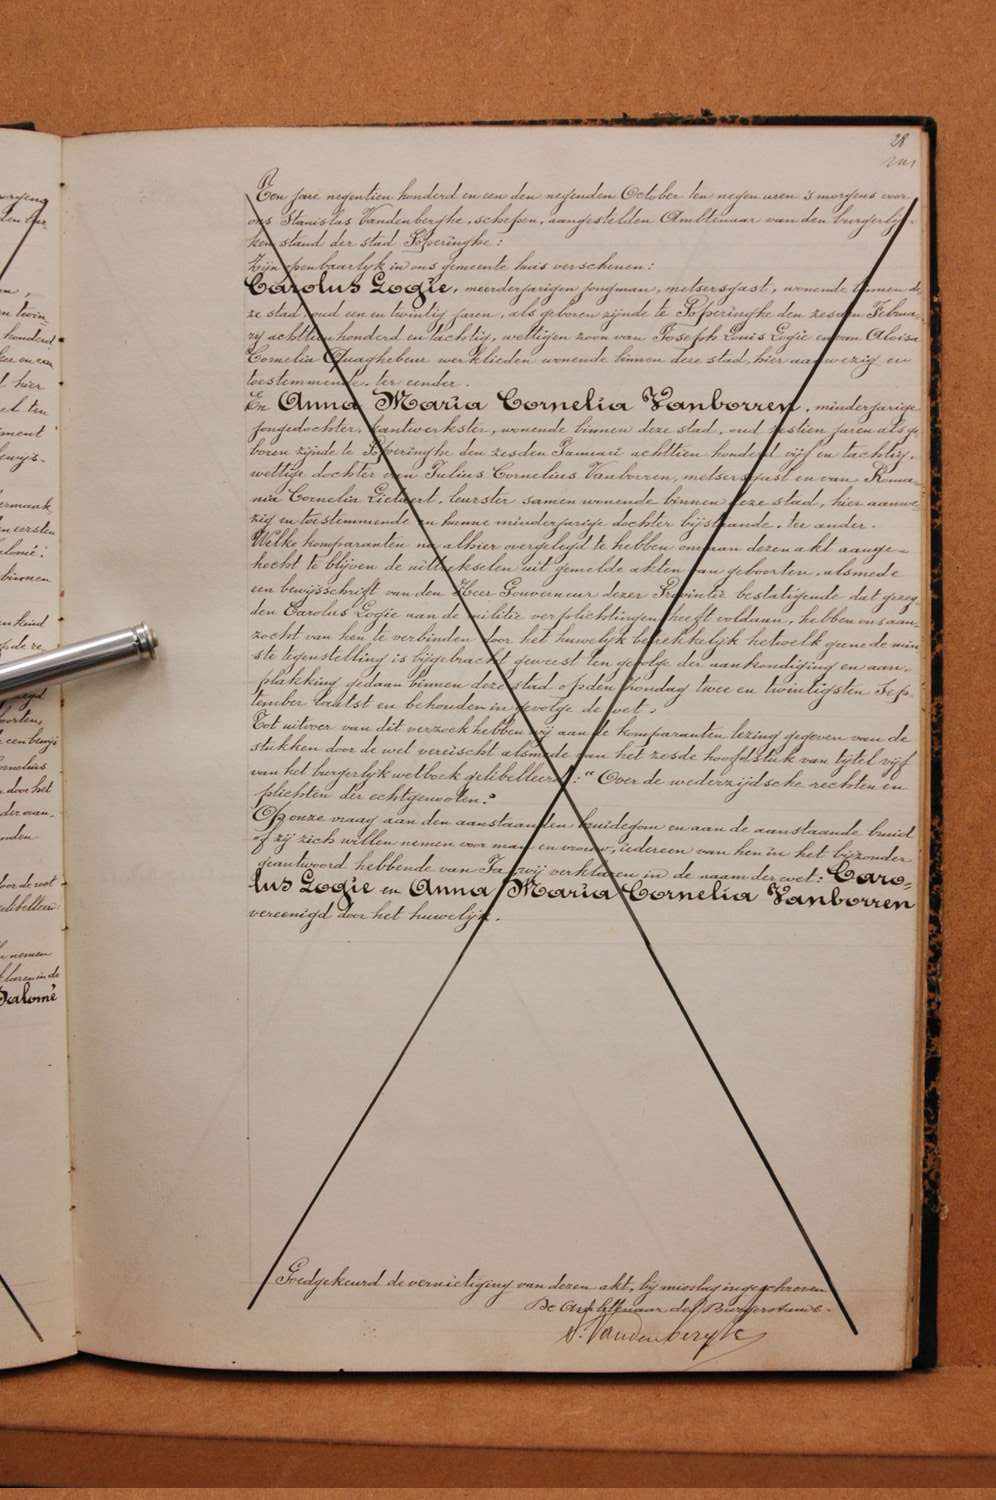 28
Een jare negentien honderd en een den negenden October ten negen uren 's morgens voor
ons Stanislas Vandenberghe, schepen, aangestelden Ambtenaar van den burgerlij-
ken stand der stad Poperinghe:
Zijn openbaarlijk in ons gemeente huis verschenen:
Carolus Logie, meerderjarigen jongman, metsersgast, wonende binnen de-
ze stad, oud een en twintig jaren, als geboren zijnde te Poperinghe den zesden Februa-
rij achttien honderd en tachtig, wettigen zoon van Joseph Louis Logie en van Aloisa
Cornelia Quaghebeur werklieden wonende binnen deze stad, hier aanwezig en
toestemmende, ter eender.
En Anna Maria Cornelia Vanborren, minderjarige
jongedochter, kantwerkster, wonende binnen deze stad, oud zestien jaren als ge-
boren zijnde te Poperinghe den zesden Januari achttien honderd vijf en tachtig,
wettige dochter van Julius Cornelius Vanborren, metsersgast en van Roma-
nia Cornelia Lietaert, leurster samen wonende binnen deze stad, hier aanwe-
zig en toestemmende en hunne minderjarige dochter bijstaande, ter ander.
Welke komparanten na alhier overgelegd te hebben om aan dezen akt aange-
hecht te blijven de uittrekselen uit gemelde akten van geboorten, alsmede
een bewijsschrift van den Heer Gouverneur dezer Provintie bestatigende dat gezeg-
den Carolus Logie aan de militie verplichtingen heeft voldaan, hebben ons aan-
zocht van hen te verbinden door het huwelijk betrekkelijk hetwelk geene de min-
ste tegenstelling is bijgebracht geweest ten gevolge der aankondiging en aan-
plakking gedaan binnen deze stad op den Zondag twee en twintigsten Sep-
tember laatst en behouden in gevolge de wet.
Tot uitvoer van dit verzoek hebben wij aan de komparanten lezing gegeven van de
stukken door de wet vereischt alsmede van het zesde hoofdstuk van tijtel vijf
van het burgerlijk wetboek gelibelleerd: "Over de wederzijdsche rechten en
plichten der echtgenooten."
Op onze vraag aan den aanstaanden bruidegom en aan de aanstaande bruid
of zij zich willen nemen voor man en vrouw, iedereen van hen in het bijzonder
geantwoord hebbende van Ja, wij verklaren in de naam der wet: Caro-
lus Logie en Anna Maria Cornelia Vanborren
vereenigd door het huwelijk.
Goedgekeurd de vernietiging van dezen akt, bij misslag ingeschreven
De Ambtenaar des Burgerstands.
S. Vandenberghe